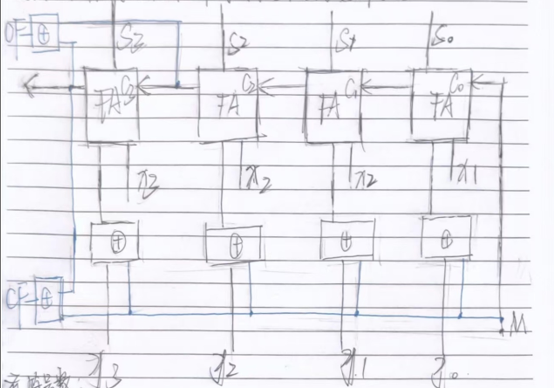 OF ⊕ S3 S2 S1 S0
FA C3 FA C2 FA C1 FA C0
x3 x2 x2 x1
⊕ ⊕ ⊕ ⊕
CF ⊕
M
y3 y2 y1 y0